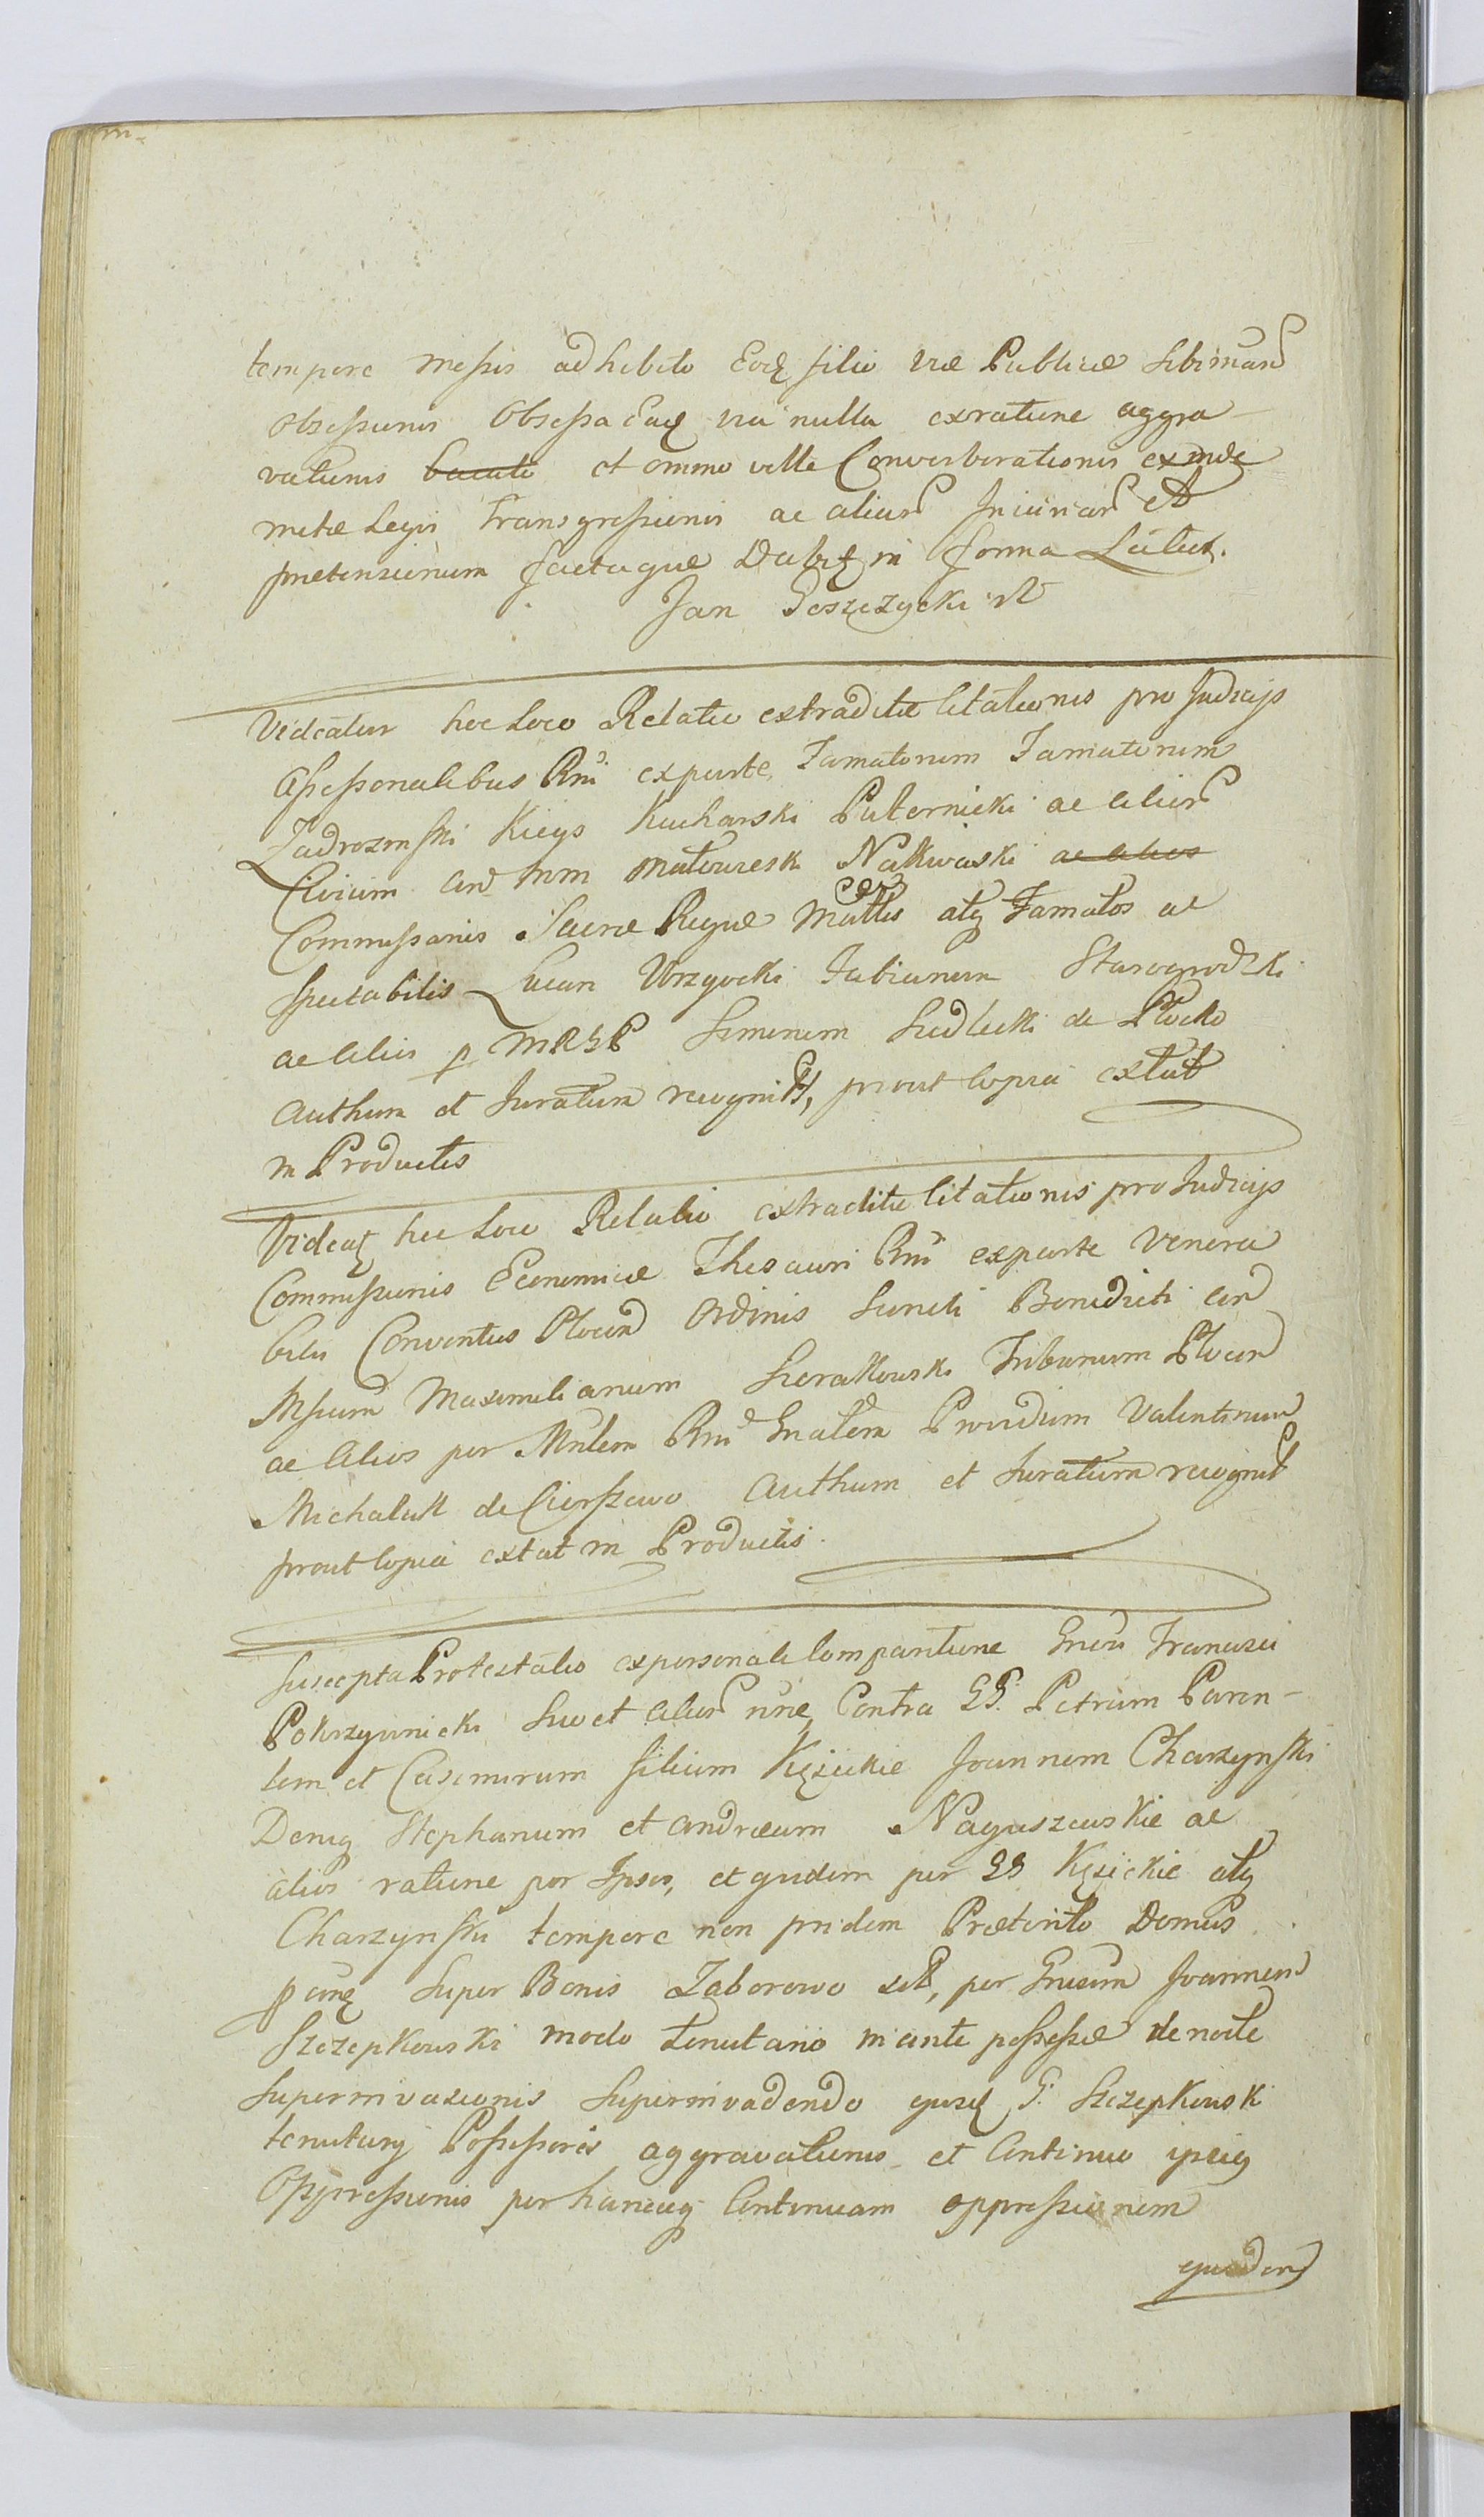 tempore messis adhibito Eodq filio viæ Publicæ sibi
obsessionis Obsessa Eaq via nulla exratione aggra-
vationis et omni velle Converberationis exinde
metæ Legis Transgressionis ac aliar Iniuriar et
prætensionum factaque Dabit in forma Latiori.
Jan Goszczycki
Videatur hoc Loco Relatio extraditæ Citationis pro Judicijs
Assessorialibus Rni exparte Famatorum
Zadrozinski Kieys Kucharski Paternicki ac alior
Civium Nakwaski ac alios
Commissarios Sacræ Regiæ Mattis atq Famatos ac
Spectabiles Lucam Fabianum Starogrodzki
ac alios p MRGP Simonem Siedlecki de Plocko
Authum et Juratum recognit, prout Copia extat
in Productis
Videat hoc Loco Relatio extraditæ Citationis pro Judicijs
Commissionis Economicæ Thesauri Rni exparte Venera
bilis Conventus Plocen Ordinis Sancti Benedicti con
Maximilianum Sierakowski Tribunum Plocen
ac alios per Mnlem Rni Gnalem Providum Valentinum
Michalak de Cierszewo Authum et Juratum recognit
prout Copia extat in Productis.
Suscepta Protestatio expersonali Comparitione Gnosi Francisci
Pokrzywnicki suo et alior nne, Contra GG. Petrum Paren-
tem et Casimirum filium Kęsickie Joannem Charzynski
Deniq Stephanum et Andræam Naguszewskie ac
alios ratione per Ipsos, et quidem per GG Kęsickie atq
Charzynski tempore non pridem Præterito Domus
super Bonis Zaborowo sit, per Gnosum Joannem
Szczepkowski modo Tenutario inante possessæ de nocte
Superinvasionis Superinvadendo ejusq G. Szczepkowski
tenutarij Possessoris aggravationis et Continuo
Oppressionis per hancq Continuam oppressionem
ejusdem